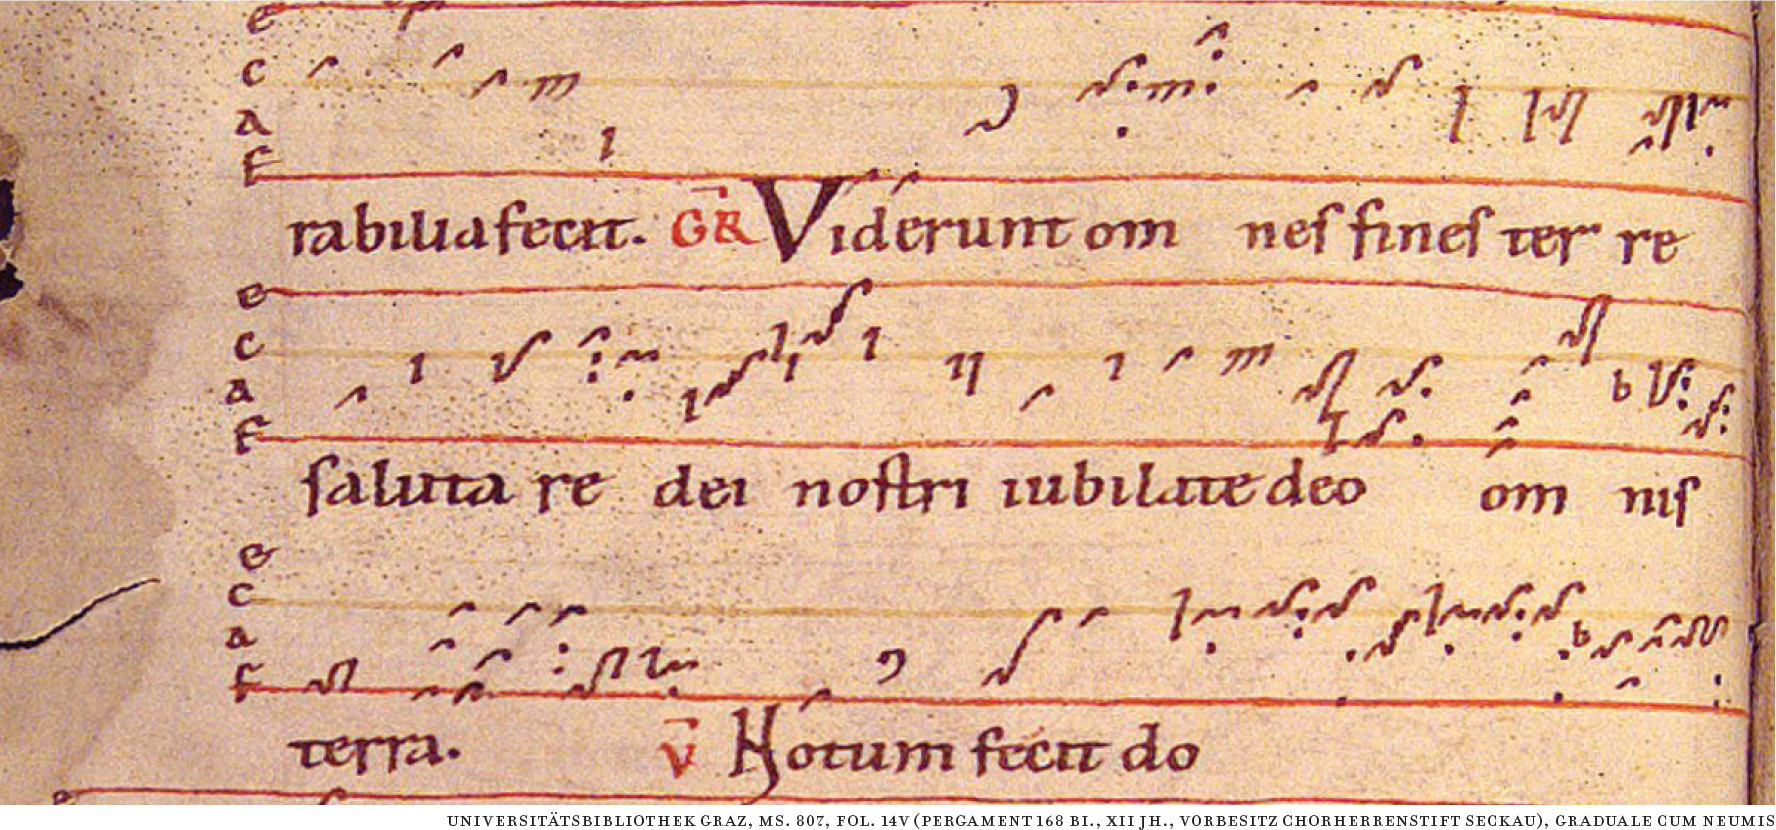 e
c
a
f
rabilia fecit. GR Viderunt om nes fines ter re
e
c
a
f
b
saluta re dei nostri iubilate deo om nis
e
c
a
f
b
terra. V Notum fecit do
e
UNIVERSITÄTSBIBLIOTHEK GRAZ, MS. 807, FOL. 14V (PERGAMENT 168 BI., XII JH., VORBESITZ CHORHERRENSTIFT SECKAU), GRADUALE CUM NEUMIS